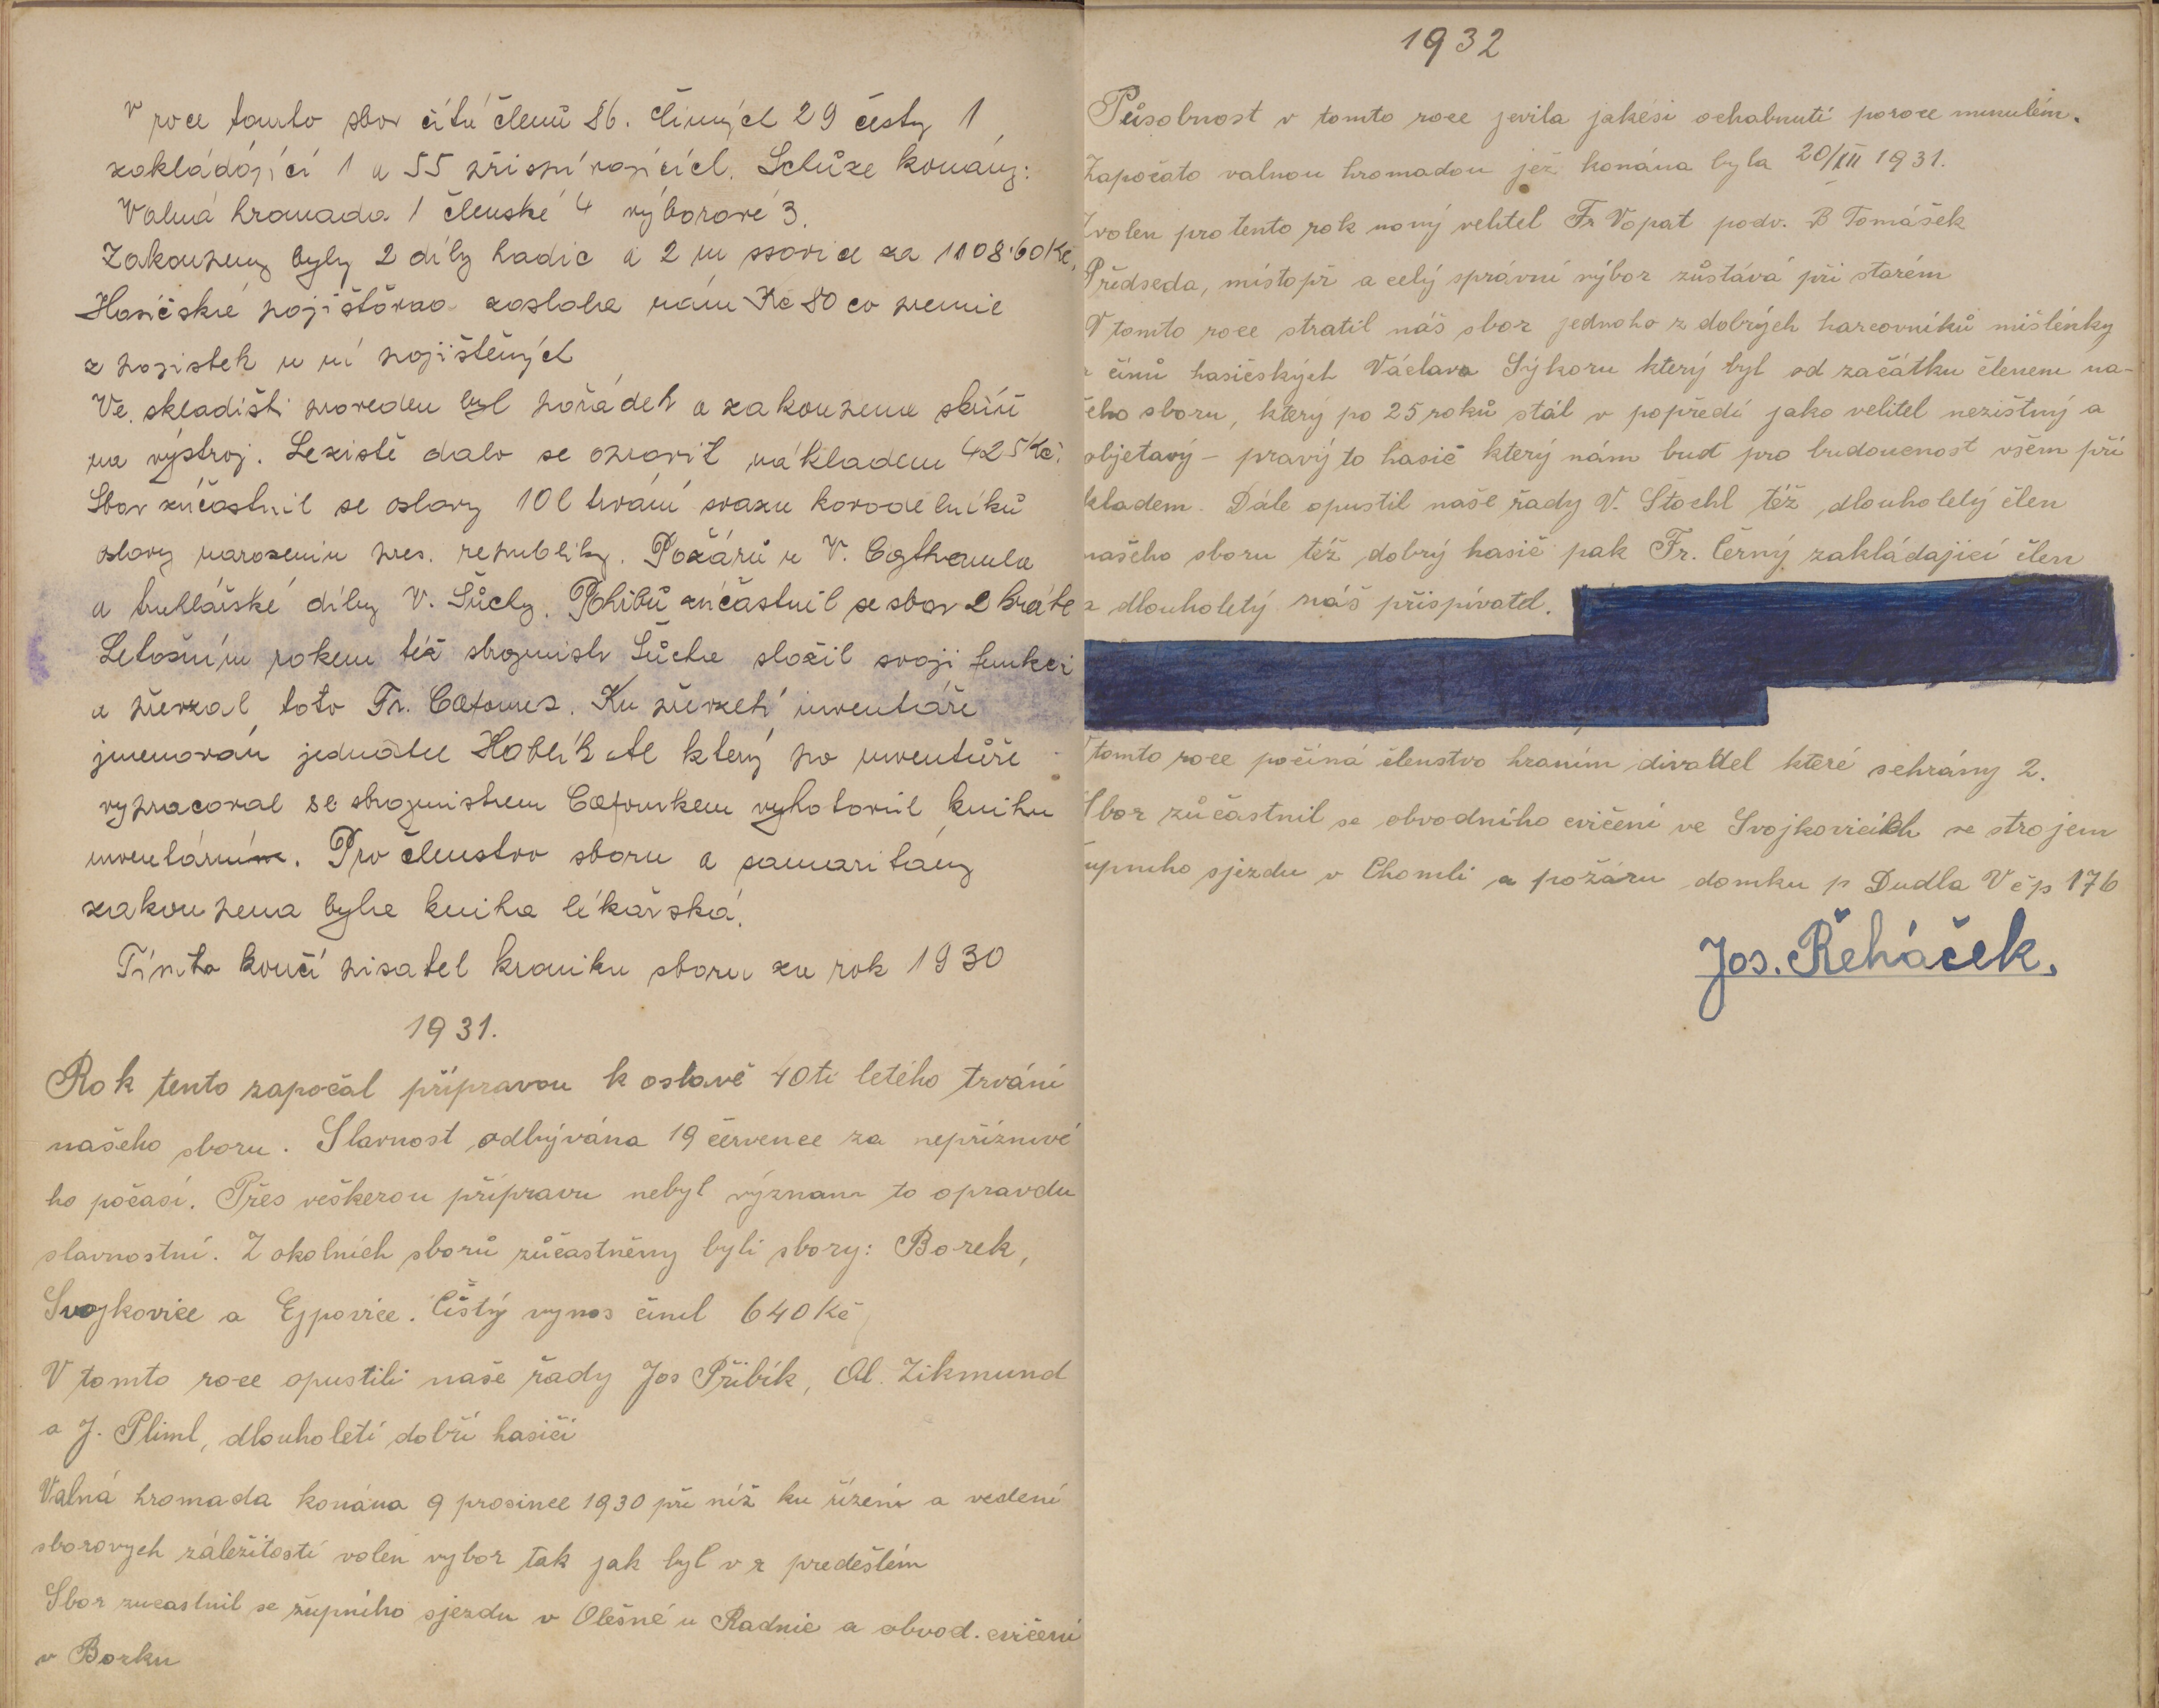 V roce tomto sbor čítá členů 86. Činných 29 čestný 1
zakládající 1 a 55 přispívajících. Schůze konány:
Valná hromada 1 členské 4 výborové 3.
Zakoupeny byly 2 díly hadic a 2 m ssavice za 1108·60 Kč,
Hasičská pojišťovna zaslala nám Kč 80 co premie
z pojistek u ní pojištěných
Ve skladišti proveden byl pořádek a zakoupena skříň
na výstroj. Leziště dalo se opravit nákladem 425 Kč.
Sbor zúčastnil se oslavy 10 l trvání svazu
oslavy narozenin pres. republiky. Požárů u V.
a truhlářské dílny V. Šůchy. Pohřbů zúčastnil se sbor 2 kráte
Letošním rokem též strojmistr Šůcha složil svoji funkci
a převzal toto Fr. Ku převzetí inventáře
jmenován jednatel Hablík Al který po inventuře
vypracoval se strojmistrem vyhotovil knihu
inventární. Pro členstvo sboru a samaritány
zakoupena byla kniha lékařská.
Tímto končí pisatel kroniku sboru za rok 1930
1931.
Rok tento započal přípravou k oslavě 40ti letého trvání
našeho sboru. Slavnost odbývána 19 července za nepříznivé
ho počasí. Přes veškerou přípravu nebyl význam to opravdu
slavnostní. Z okolních sborů zůčastněny byli sbory: Borek,
Svojkovice a Ejpovice. Čistý vynos činil 640 Kč
V tomto roce opustili naše řady Jos Přibík, Al. Zikmund
a J. Pliml, dlouholetí dobří hasiči
Valná hromada konána 9 prosince 1930 při níž ku řízení a vedení
sborovych záležitostí volen vybor tak jak byl v r předešlém
Sbor zucastnil se župního sjezdu v Olešné u Radnic a obvod. cvičení
v Borku
1932
Působnost v tomto roce jevila jakési ochabnutí po roce minulém.
Započato valnou hromadou jež konána byla 20/XII 1931.
Zvolen pro tento rok nový velitel Fr Vopat podv. B Tomášek
Předseda, místopř a celý správní výbor zůstává při starém
V tomto roce stratil náš sbor jednoho z dobrých harcovníků mišlénky
činů hasičských Václava Sýkoru který byl od začátku členem na-
eho sboru, který po 25 roků stál v popředí jako velitel nezištný a
objetavý – pravý to hasič který nám buď pro budoucnost všem pří
kladem. Dále opustil naše řady V. Štochl též dlouholetý člen
našeho sboru též dobrý hasič pak Fr. Černý zakládající člen
a dlouholetý náš přispívatel.
V tomto roce počíná členstvo hraním divadel které sehrány 2.
Sbor zůčastnil se obvodního cvičení ve Svojkovicích se strojem
župního sjezdu v Chomli a požáru domku p Dudla V čp 176
Jos. Řeháček.